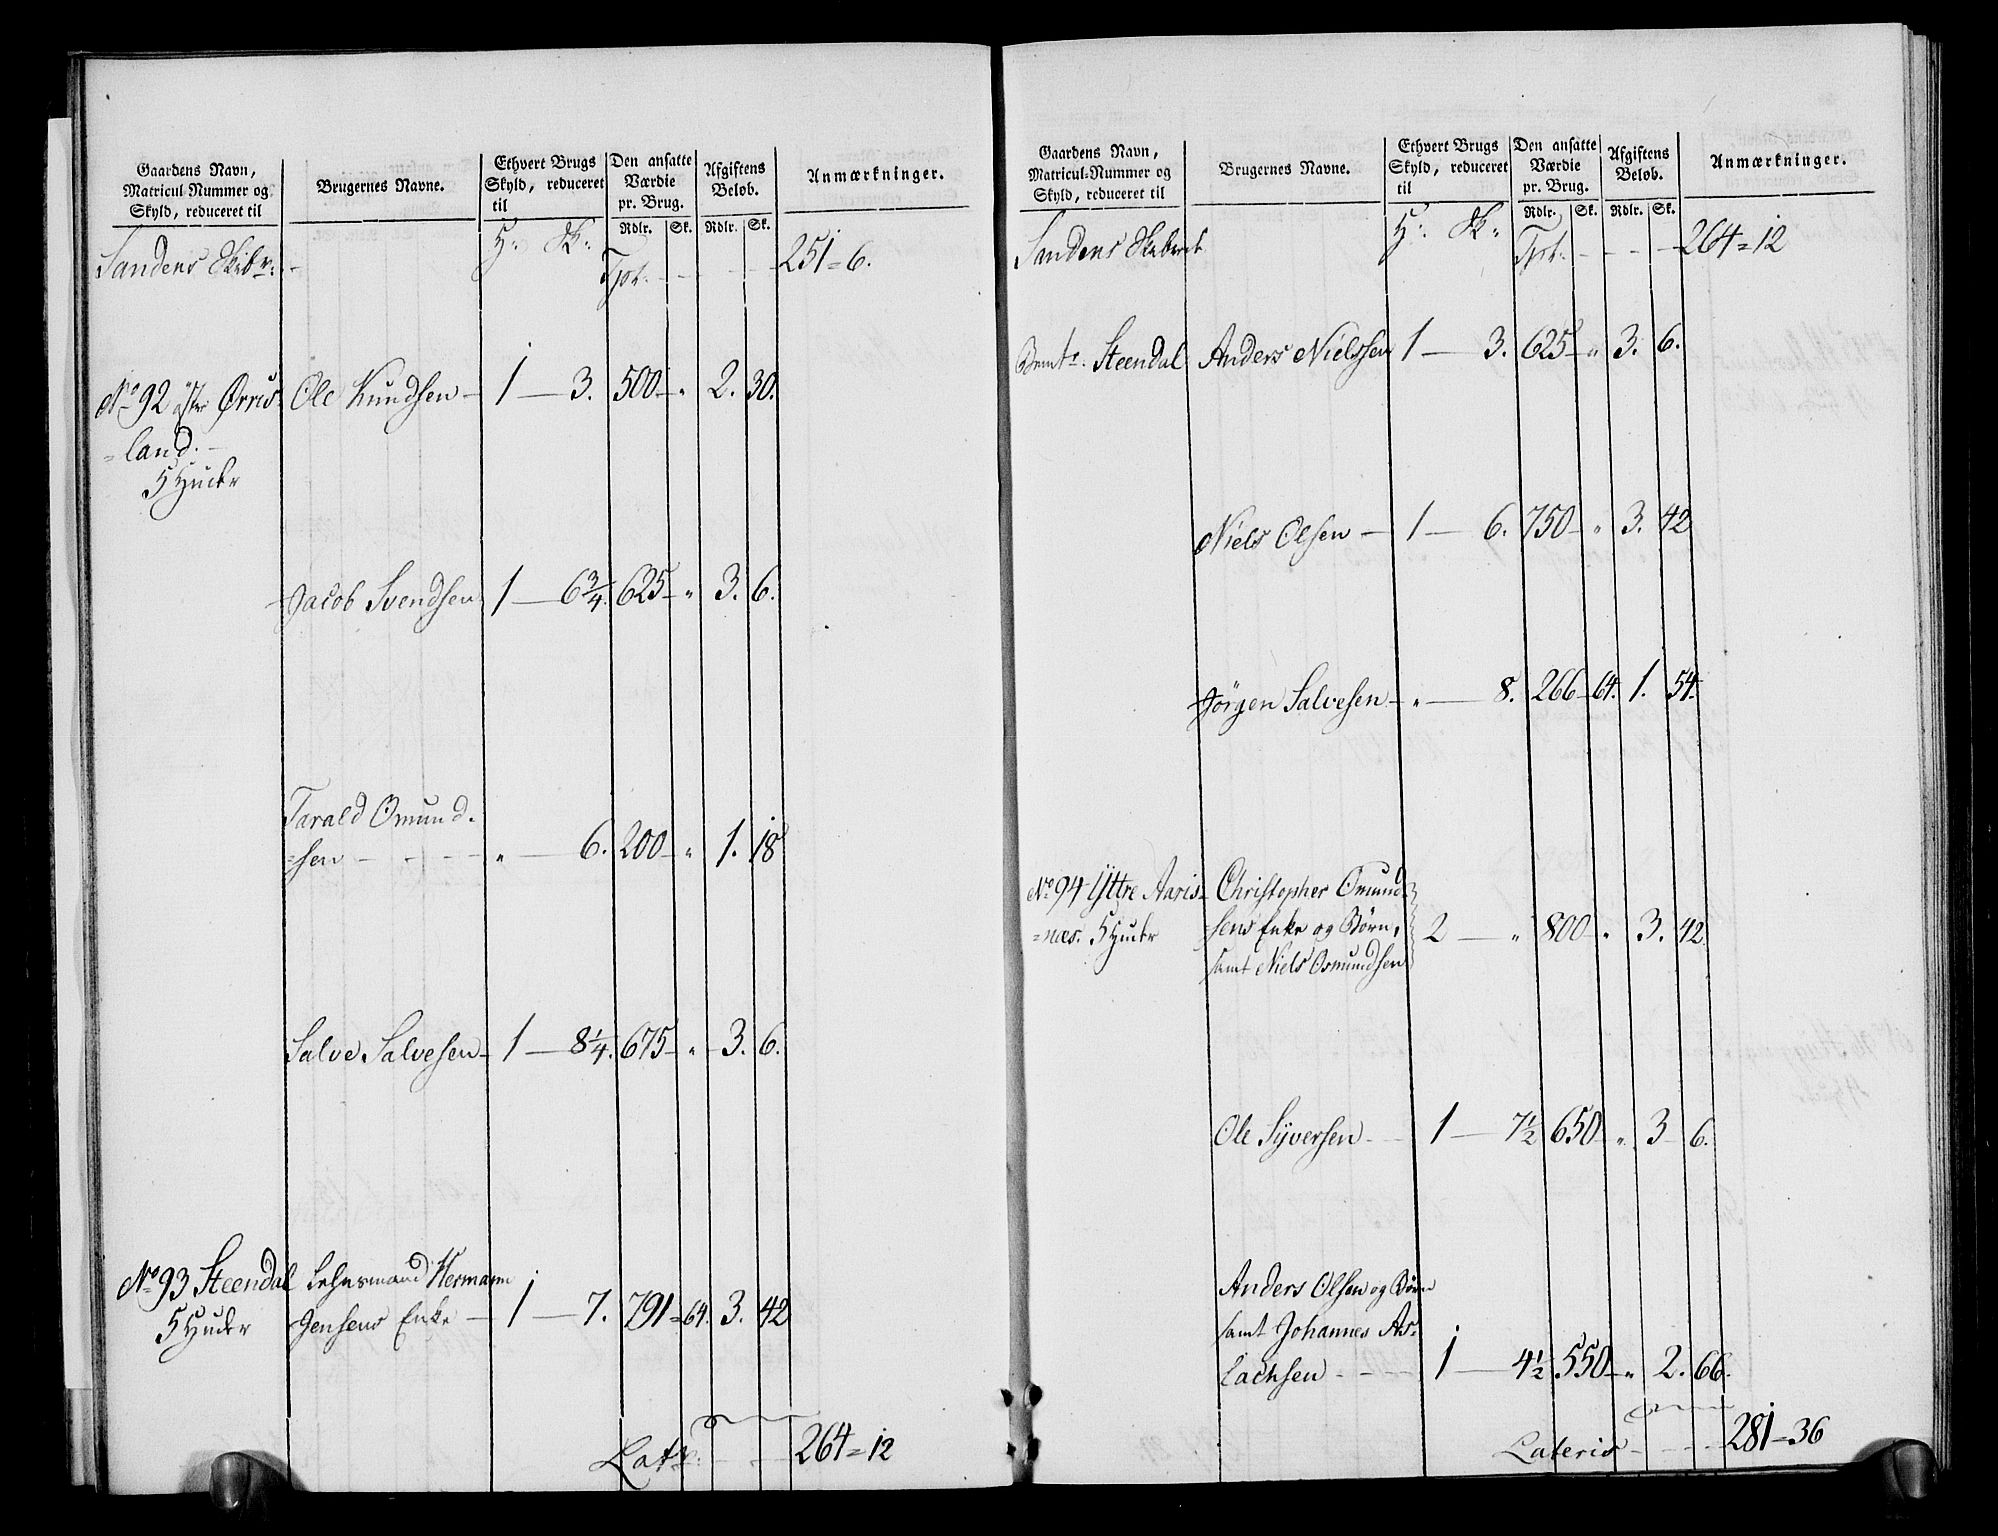 Gaardens Navn,
Matricul-Nummer og
Skyld, reduceret til
Brugernes Navne.
Ethvert Brugs
Skyld, reduceret
til
Den ansatte
Værdie
pr. Brug.
Afgiftens
Beløb.
Anmærkninger.
Rdlr. Sk. Rdlr. Sk.
H: Sk:
Sandens Skibr: - Tpt. - - - 251=6.
No 92 øster Ørris Ole Knudsen - 1 - 3. 500 - " 2. 30.
=land. -
5 Huder
Jacob Svendsen 1 - 6 3/4. 625 - " 3. 6.
Tarald Omund-
=sen - - - - " - 6. 200 - " 1. 18
Salve Salvesen - 1 - 8 1/4. 675 - " 3. 6.
No 93 Steendal Lehnsmand Hermann
5 Huder Jensens Enke - 1 - 7. 791=64. 3. 42
Latr: - - - 264=12
Gaardens Navn,
Matricul-Nummer og
Skyld, reduceret til
Brugernes Navne.
Ethvert Brugs
Skyld, reduceret
til
Den ansatte
Værdie
pr. Brug.
Afgiftens
Beløb.
Anmærkninger.
Rdlr. Sk. Rdlr. Sk.
H: Sk:
Sandens Skibret Tpt. - - - 264=12
Steendal Anders Nielssen 1 - 3. 625 - " 3. 6.
Niels Olsen - 1 - 6. 750 - " 3. 42
Jörgen Salvesen - " - 8. 266 - 64. 1. 54.
No 94 Yttre Aaris- Christopher Omund-
=næs. 5 Huder =sens Enke og Børn, 2 - " 800 - " 3. 42.
samt Niels Osmundsen
Ole Syversen - - 1 - 7 1/2 650 - " 3 - 6.
Anders Olsen og Børn
samt Johannes As-
lachsen - - - 1 - 4 1/2 550 - " 2. 66.
Lateris - - - 281=36